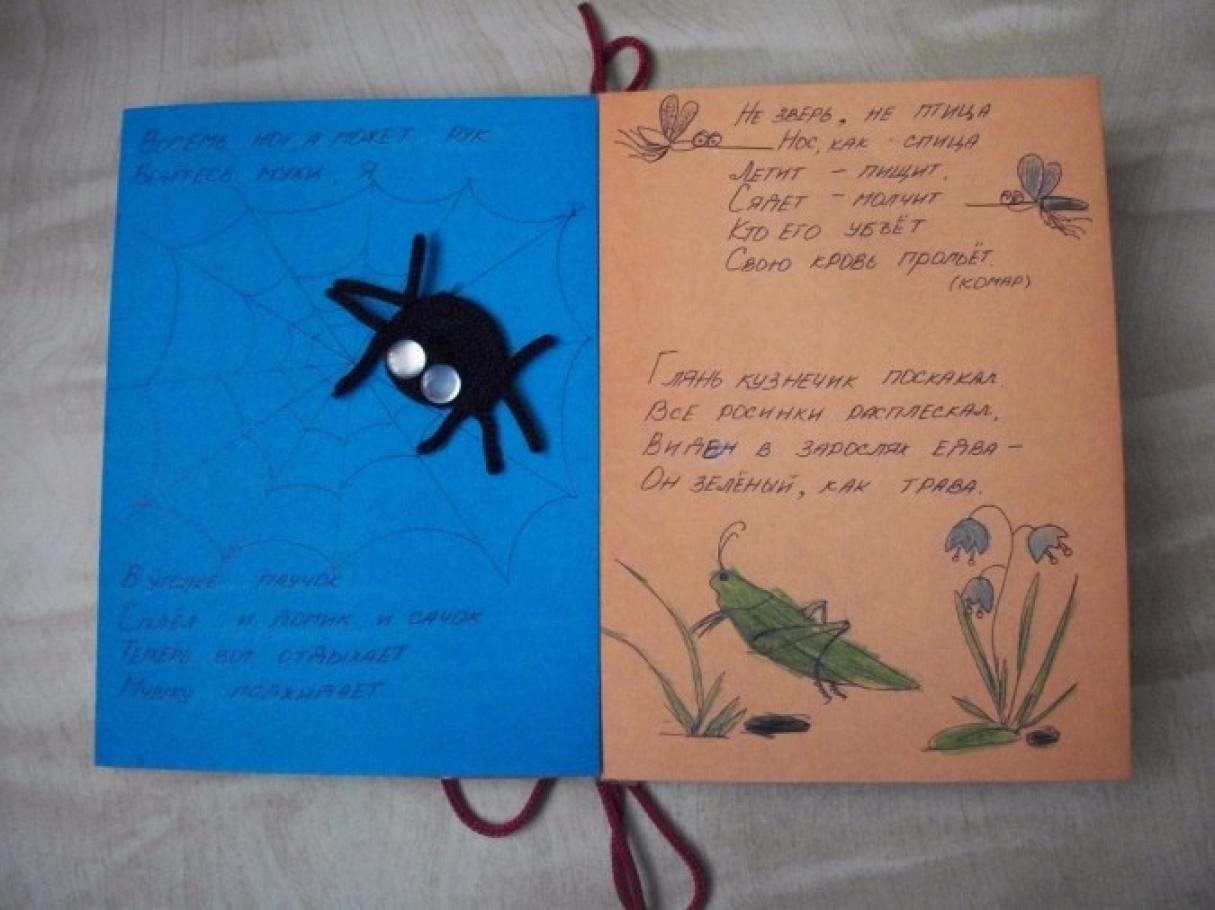 Восемь ног, а может рук
Бойтесь мухи. Я...
В уголке паучок
Сплёл и домик и сачок
Теперь вот отдыхает
Мушку поджидает
Не зверь, не птица
Нос, как спица
Летит – пищит,
Сядет – молчит
Кто его убъёт
Свою кровь прольёт.
(комар)
Глянь кузнечик поскакал.
Все росинки расплескал.
Виден в зарослях едва –
Он зелёный, как трава.